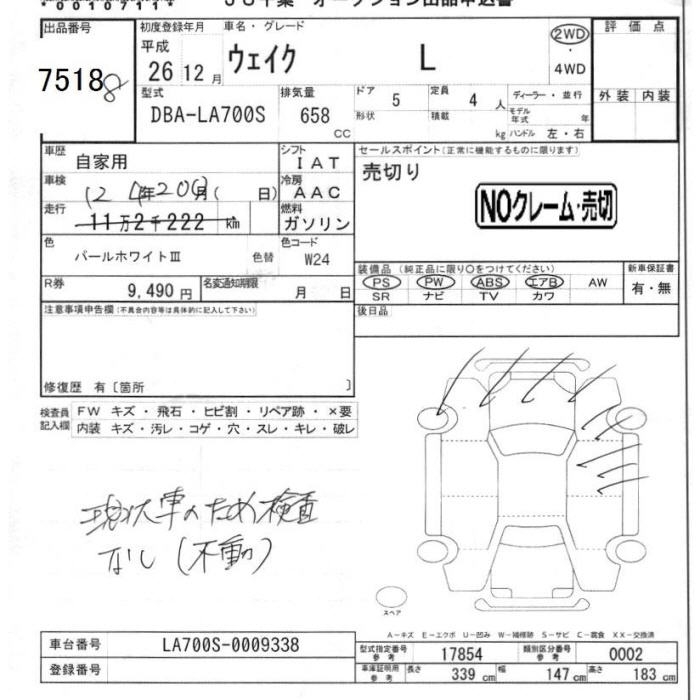 出品番号
75188
初度登録年月
平成
26 12 月
車名・グレード
ウェイク L
2WD
4WD
評価点
外装 内装
型式
DBA-LA700S
排気量
658 CC
ドア 5
形状
定員 4 人
積載 kg
ディーラー・並行
モデル年式 年
ハンドル 左・右
車歴
自家用
シフト
IAT
車検
冷房
AAC
走行
11万2千222 km
燃料
ガソリン
セールスポイント(正常に機能するものに限ります)
売切り
NOクレーム・売切
色
パールホワイトⅢ 色替
色コード
W24
R券
9,490 円
名変通知期限
月 日
装備品(純正品に限り○をつけてください)
PS PW ABS エアB AW
SR ナビ TV カワ
新車保証書
有・無
注意事項申告欄(不具合内容等は具体的に記入して下さい)
後日品
修復歴 有〔箇所 〕
検査員記入欄
FW キズ・飛石・ヒビ割・リペア跡・×要
内装 キズ・汚レ・コゲ・穴・スレ・キレ・破レ
現状車のため検査
なし(不動)
スペア
A-キズ E-エクボ U-凹み W-補修跡 S-サビ C-腐食 XX-交換済
車台番号
LA700S-0009338
登録番号
型式指定番号 参考
17854
類別区分番号 参考
0002
車庫証明用 参考
長さ 339 cm 幅 147 cm 高さ 183 cm